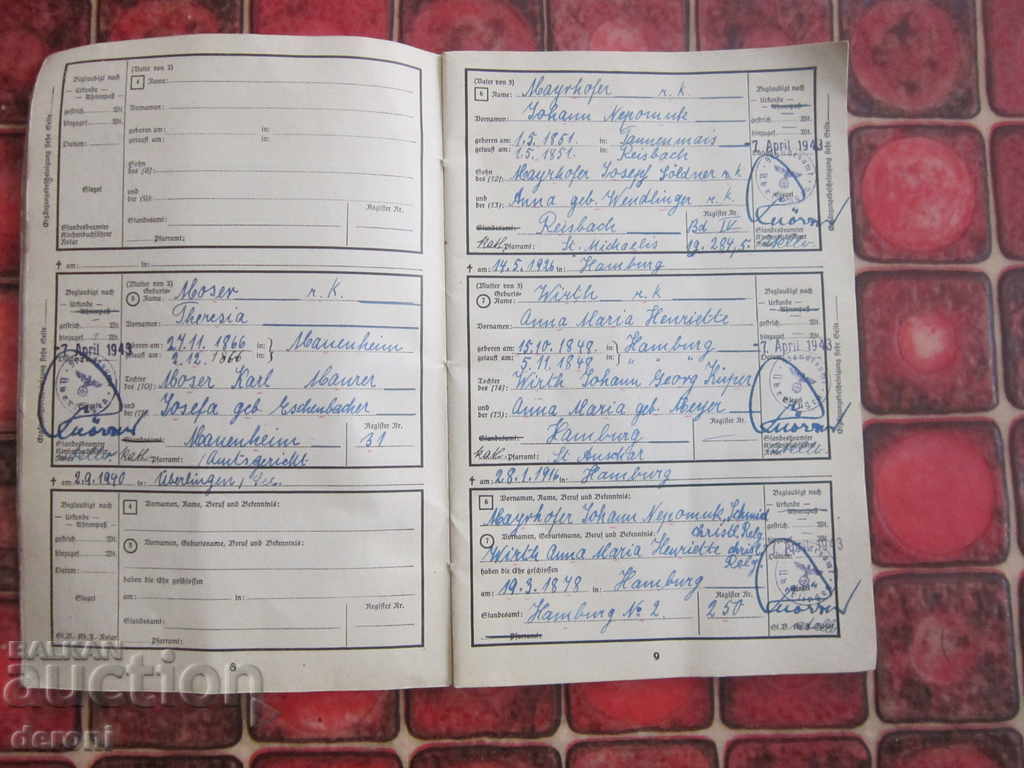 Beglaubigt nach
Urkunde
Ahnenpaß
gestrich. Wt.
hinzugef. Wt.
Datum:
Siegel
Standesbeamter
Kirchenbuchführer
Notar
Ergänzungsbescheinigung siehe Seite
(Vater von 2)
4 Name:
Vornamen:
geboren am: in:
getauft am: in:
Sohn
des (8):
und
der (9):
Standesamt: Register Nr.
Pfarramt:
† am: in:
Beglaubigt nach
Urkunde
Ahnenpaß
gestrich. Wt.
hinzugef. Wt.
7. April 1943
Standesbeamter
5 Geburts-
Name: Moser r. k.
Vornamen: Theresia
geboren am: 27.11.1866 in:
getauft am: 2.12.1866 in: Mauenheim
Tochter
des (10): Moser Karl Maurer
und
der (11): Josefa geb Eschenbacher
Standesamt: Mauenheim Register Nr. 31
kath. Pfarramt: /Amtsgericht
† am: 2.9.1940 in: Überlingen/See.
Beglaubigt nach
Urkunde
Ahnenpaß
gestrich. Wt.
hinzugef. Wt.
Datum:
Siegel
St.B. Kb.F. Notar
4 Vornamen, Name, Beruf und Bekenntnis:
5 Vornamen, Geburtsname, Beruf und Bekenntnis:
haben die Ehe geschlossen
am: in:
Standesamt: Register Nr.
Pfarramt:
8
(Vater von 3)
6 Name: Mayrhofer r. k
Vornamen: Johann Nepomuk
geboren am: 1.5.1851. in: Tannenmais
getauft am: 1.5.1851. in: Reisbach
Sohn
des (12): Mayrhofer Josef Söldner r. k
und
der (13): Anna geb. Wendlinger r. k
Standesamt: Reisbach Register Nr. Bd IV
kath. Pfarramt: St. Michaelis 19.284,5.
† am: 14.5.1926 in: Hamburg
Beglaubigt nach
Urkunde
Ahnenpaß
gestrich. Wt.
hinzugef. Wt.
7. April 1943
Siegel
Ergänzungsbescheinigung siehe Seite
7 Geburts-
Name: Wirth r. k
Vornamen: Anna Maria Henriette
geboren am: 15.10.1848. in: Hamburg
getauft am: 5.11.1848. in: " "
Tochter
des (14): Wirth Johann Georg Küper
und
der (15): Anna Maria geb. Meyer
Standesamt: Hamburg Register Nr.
kath. Pfarramt: St Anschar
† am: 28.1.1916 in: Hamburg
Beglaubigt nach
Urkunde
Ahnenpaß
gestrich. Wt.
hinzugef. Wt.
7. April 1943
Standesbeamter
Ergänzungsbescheinigung siehe Seite
6 Vornamen, Name, Beruf und Bekenntnis:
Mayrhofer Johann Nepomuk, Schmied
christl. Relg.
7 Vornamen, Geburtsname, Beruf und Bekenntnis:
Wirth Anna Maria Henriette christl. Relg.
haben die Ehe geschlossen
am: 19.3.1878 in: Hamburg
Standesamt: Hamburg No 2. Register Nr. 250
Pfarramt:
Beglaubigt nach
Urkunde
Ahnenpaß
gestrich. Wt.
9
BALKAN
auction
deroni